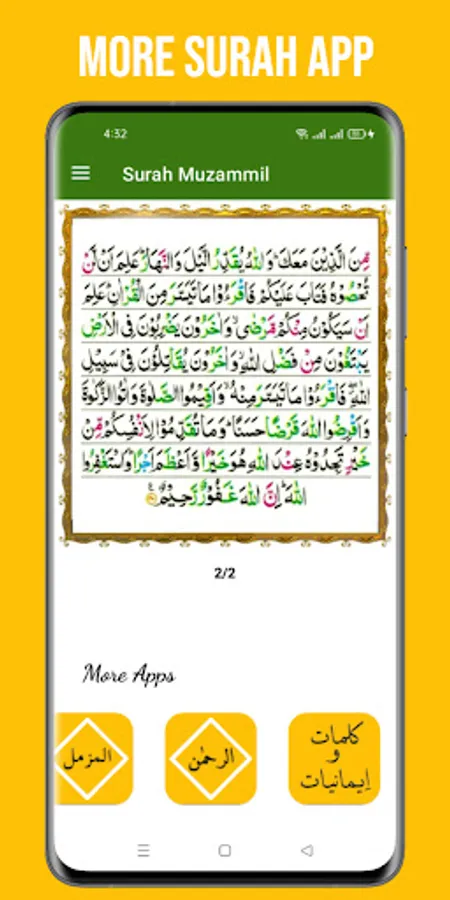 MORE SURAH APP
4:32
Surah Muzammil
مِّنَ الَّذِيْنَ مَعَكَ ؕ وَاللّٰهُ يُقَدِّرُ الَّيْلَ وَالنَّهَارَ ؕ عَلِمَ اَنْ لَّنْ
تُحْصُوْهُ فَتَابَ عَلَيْكُمْ فَاقْرَءُوْا مَا تَيَسَّرَ مِنَ الْقُرْاٰنِ ؕ عَلِمَ
اَنْ سَيَكُوْنُ مِنْكُمْ مَّرْضٰى ۙ وَاٰخَرُوْنَ يَضْرِبُوْنَ فِى الْاَرْضِ
يَبْتَغُوْنَ مِنْ فَضْلِ اللّٰهِ ۙ وَاٰخَرُوْنَ يُقَاتِلُوْنَ فِىْ سَبِيْلِ
اللّٰهِ ۖ فَاقْرَءُوْا مَا تَيَسَّرَ مِنْهُ ۙ وَاَقِيْمُوا الصَّلٰوةَ وَاٰتُوا الزَّكٰوةَ
وَاَقْرِضُوا اللّٰهَ قَرْضًا حَسَنًا ؕ وَمَا تُقَدِّمُوْا لِاَنْفُسِكُمْ مِّنْ
خَيْرٍ تَجِدُوْهُ عِنْدَ اللّٰهِ هُوَ خَيْرًا وَّاَعْظَمَ اَجْرًا ؕ وَاسْتَغْفِرُوا
اللّٰهَ ؕ اِنَّ اللّٰهَ غَفُوْرٌ رَّحِيْمٌ
2/2
More Apps
المزمل
الرحمٰن
كلمات
و
اِیمانیات